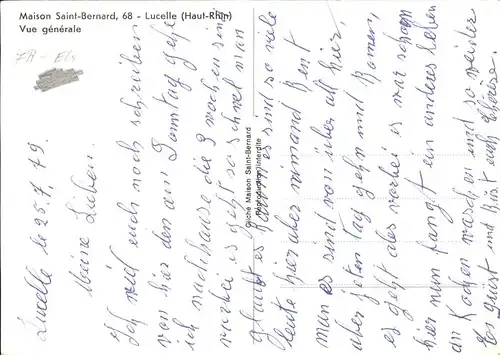 Maison Saint-Bernard, 68 - Lucelle (Haut-Rhin)
Vue générale
FR - Els
Cliché Maison Saint-Bernard
Reproduction interdite
Lucelle le 25.7.79.
Meine Lieben.
Ich will euch noch schreiben
von hier den am Samstag gehe
ich nachhause die 3 wochen sind
vorbei es geht so schnell man
glaubt es kaum es sind so viele
leute hier aber niemand kent
man es sind von über all hier,
aber jeten tag gehn und komen,
es geht alles vorbei es war schön
hier nun fangt ein anderes leben
an Kochen waschen und so weiter
Es Grüst und küst euch Thérèse